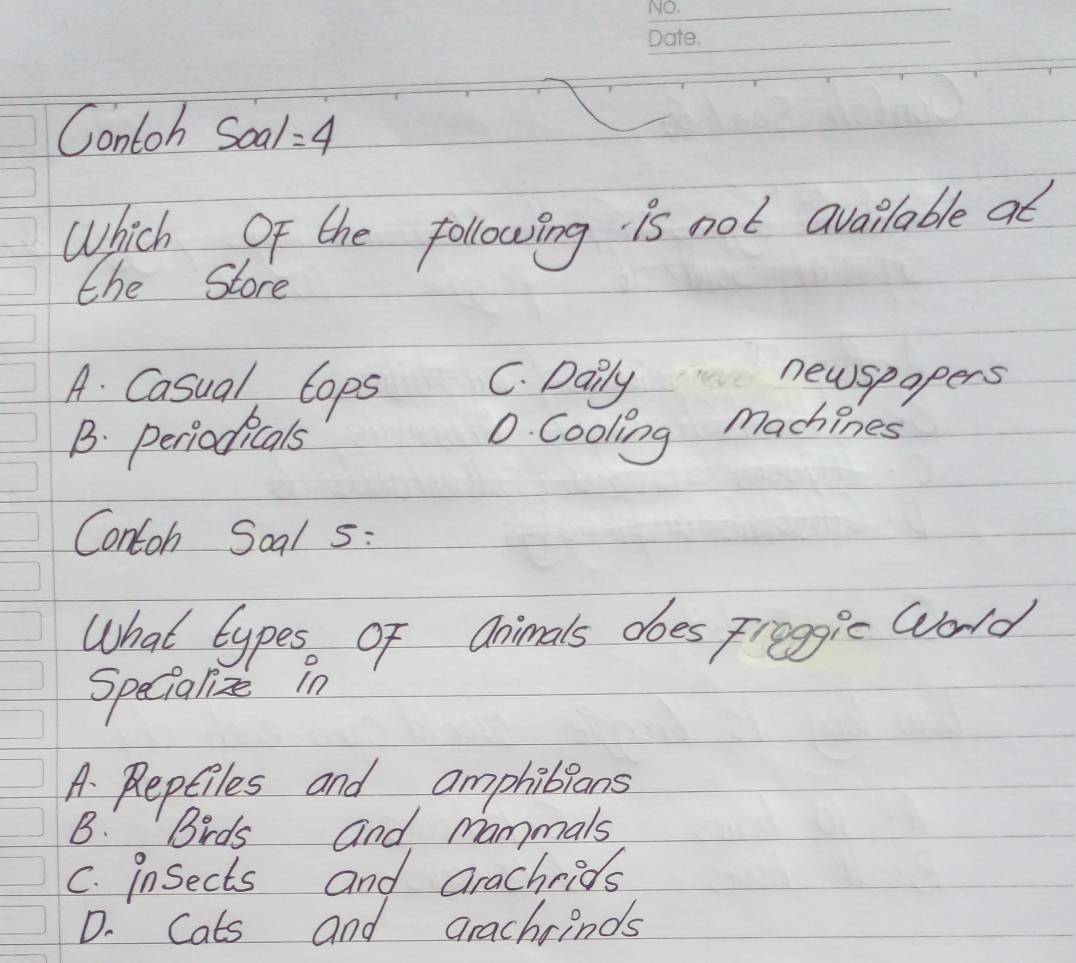 No.
Date.
Contoh Soal = 4
Which OF the following is not available at
the Store
A. Casual tops C. Daily newspapers
B. periodicals D. Cooling Machines
Contoh Soal 5:
What types OF Animals does Froggie World
Specialize in
A. Reptiles and amphibians
B. Birds and mammals
C. insects and arachrids
D. Cats and arachrinds